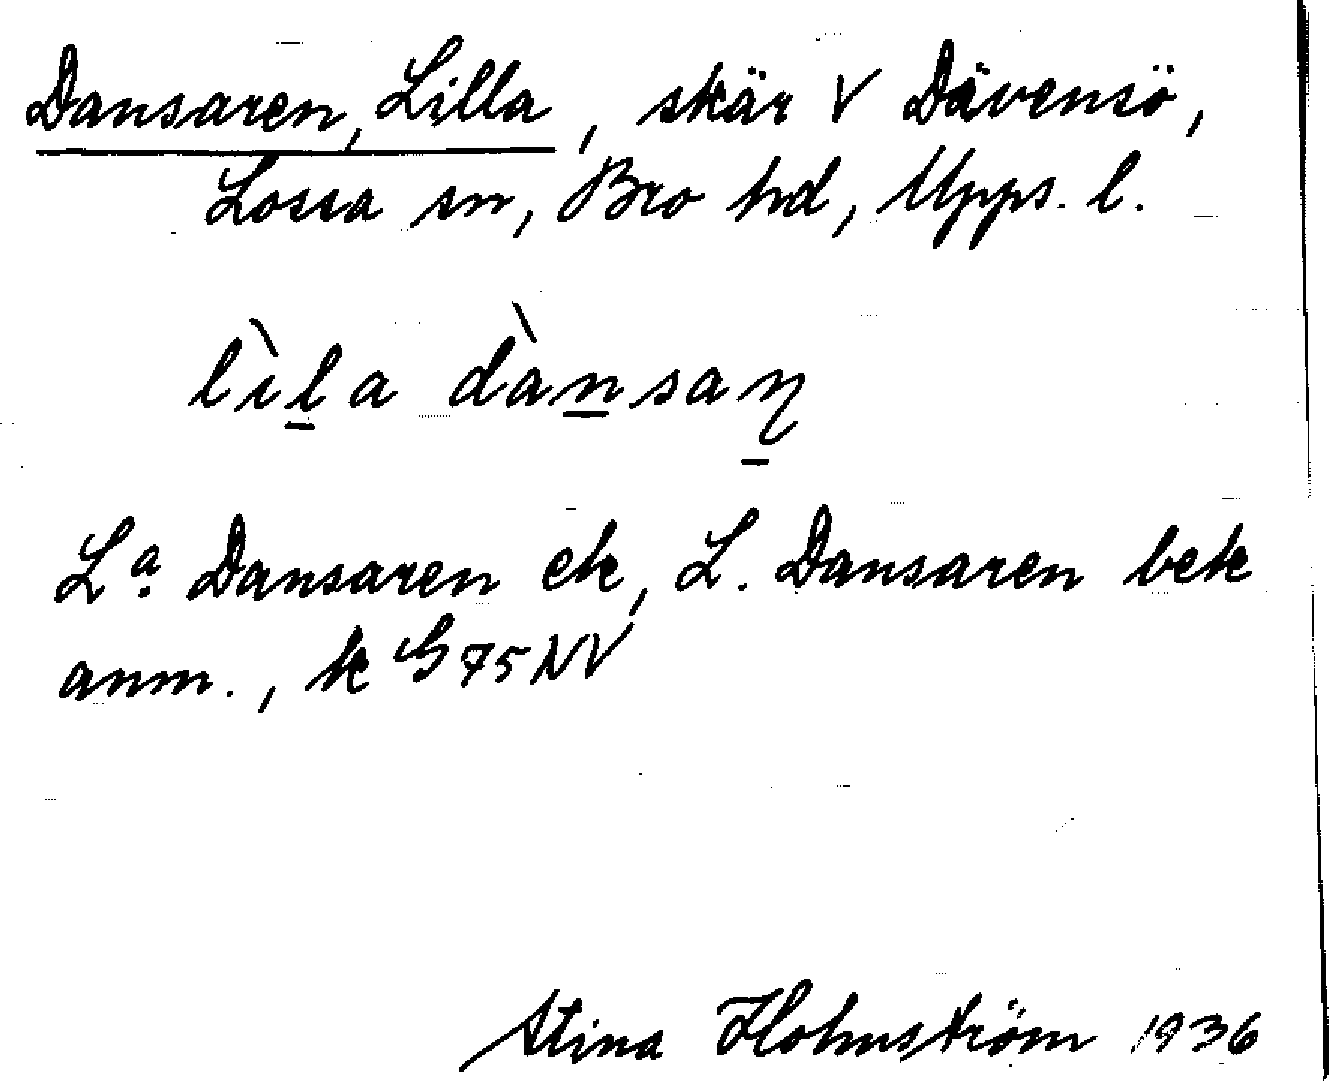 Dansaren, Lilla, skär V Dävensö,
Lossa sn, Bro hd, Upps. l.
lìl̠a dàn̠saɳ̠
Lª. Dansaren ek, L. Dansaren bek
anm., k G 75 NV
Stina Holmström 1936